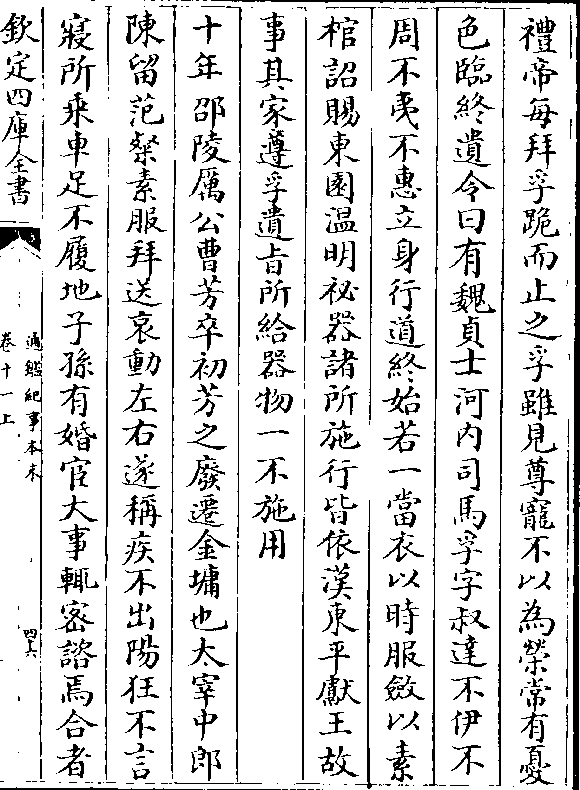 禮帝每拜孚跪而止之孚雖見尊寵不以為榮常有憂
色臨終遺令曰有魏貞士河内司馬孚字叔達不伊不
周不夷不惠立身行道終始若一當衣以時服斂以素
棺詔賜東園溫明祕器諸所施行皆依漢東平獻王故
事其家遵孚遺旨所給器物一不施用
十年邵陵厲公曹芳卒初芳之廢遷金墉也太宰中郎
陳留范粲素服拜送哀動左右遂稱疾不出陽狂不言
寢所乘車足不履地子孫有婚宦大事輒密諮焉合者
欽定四庫全書
通鑑紀事本末
卷十一上
四十六